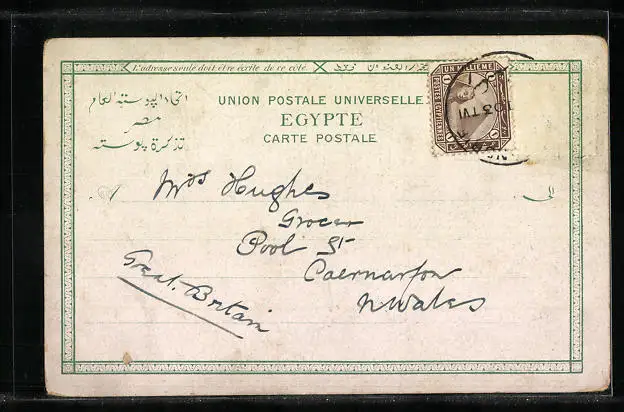 L'adresse seule doit être écrite de ce côté.
UNION POSTALE UNIVERSELLE
EGYPTE
CARTE POSTALE
اتحاد البوسته العام
مصر
تذكرة بوسته
UN MILLIEME
POSTES EGYPTIENNES
الى
Mrs Hughes
Grocer
Pool St
Caernarfon
N Wales
Great Britain